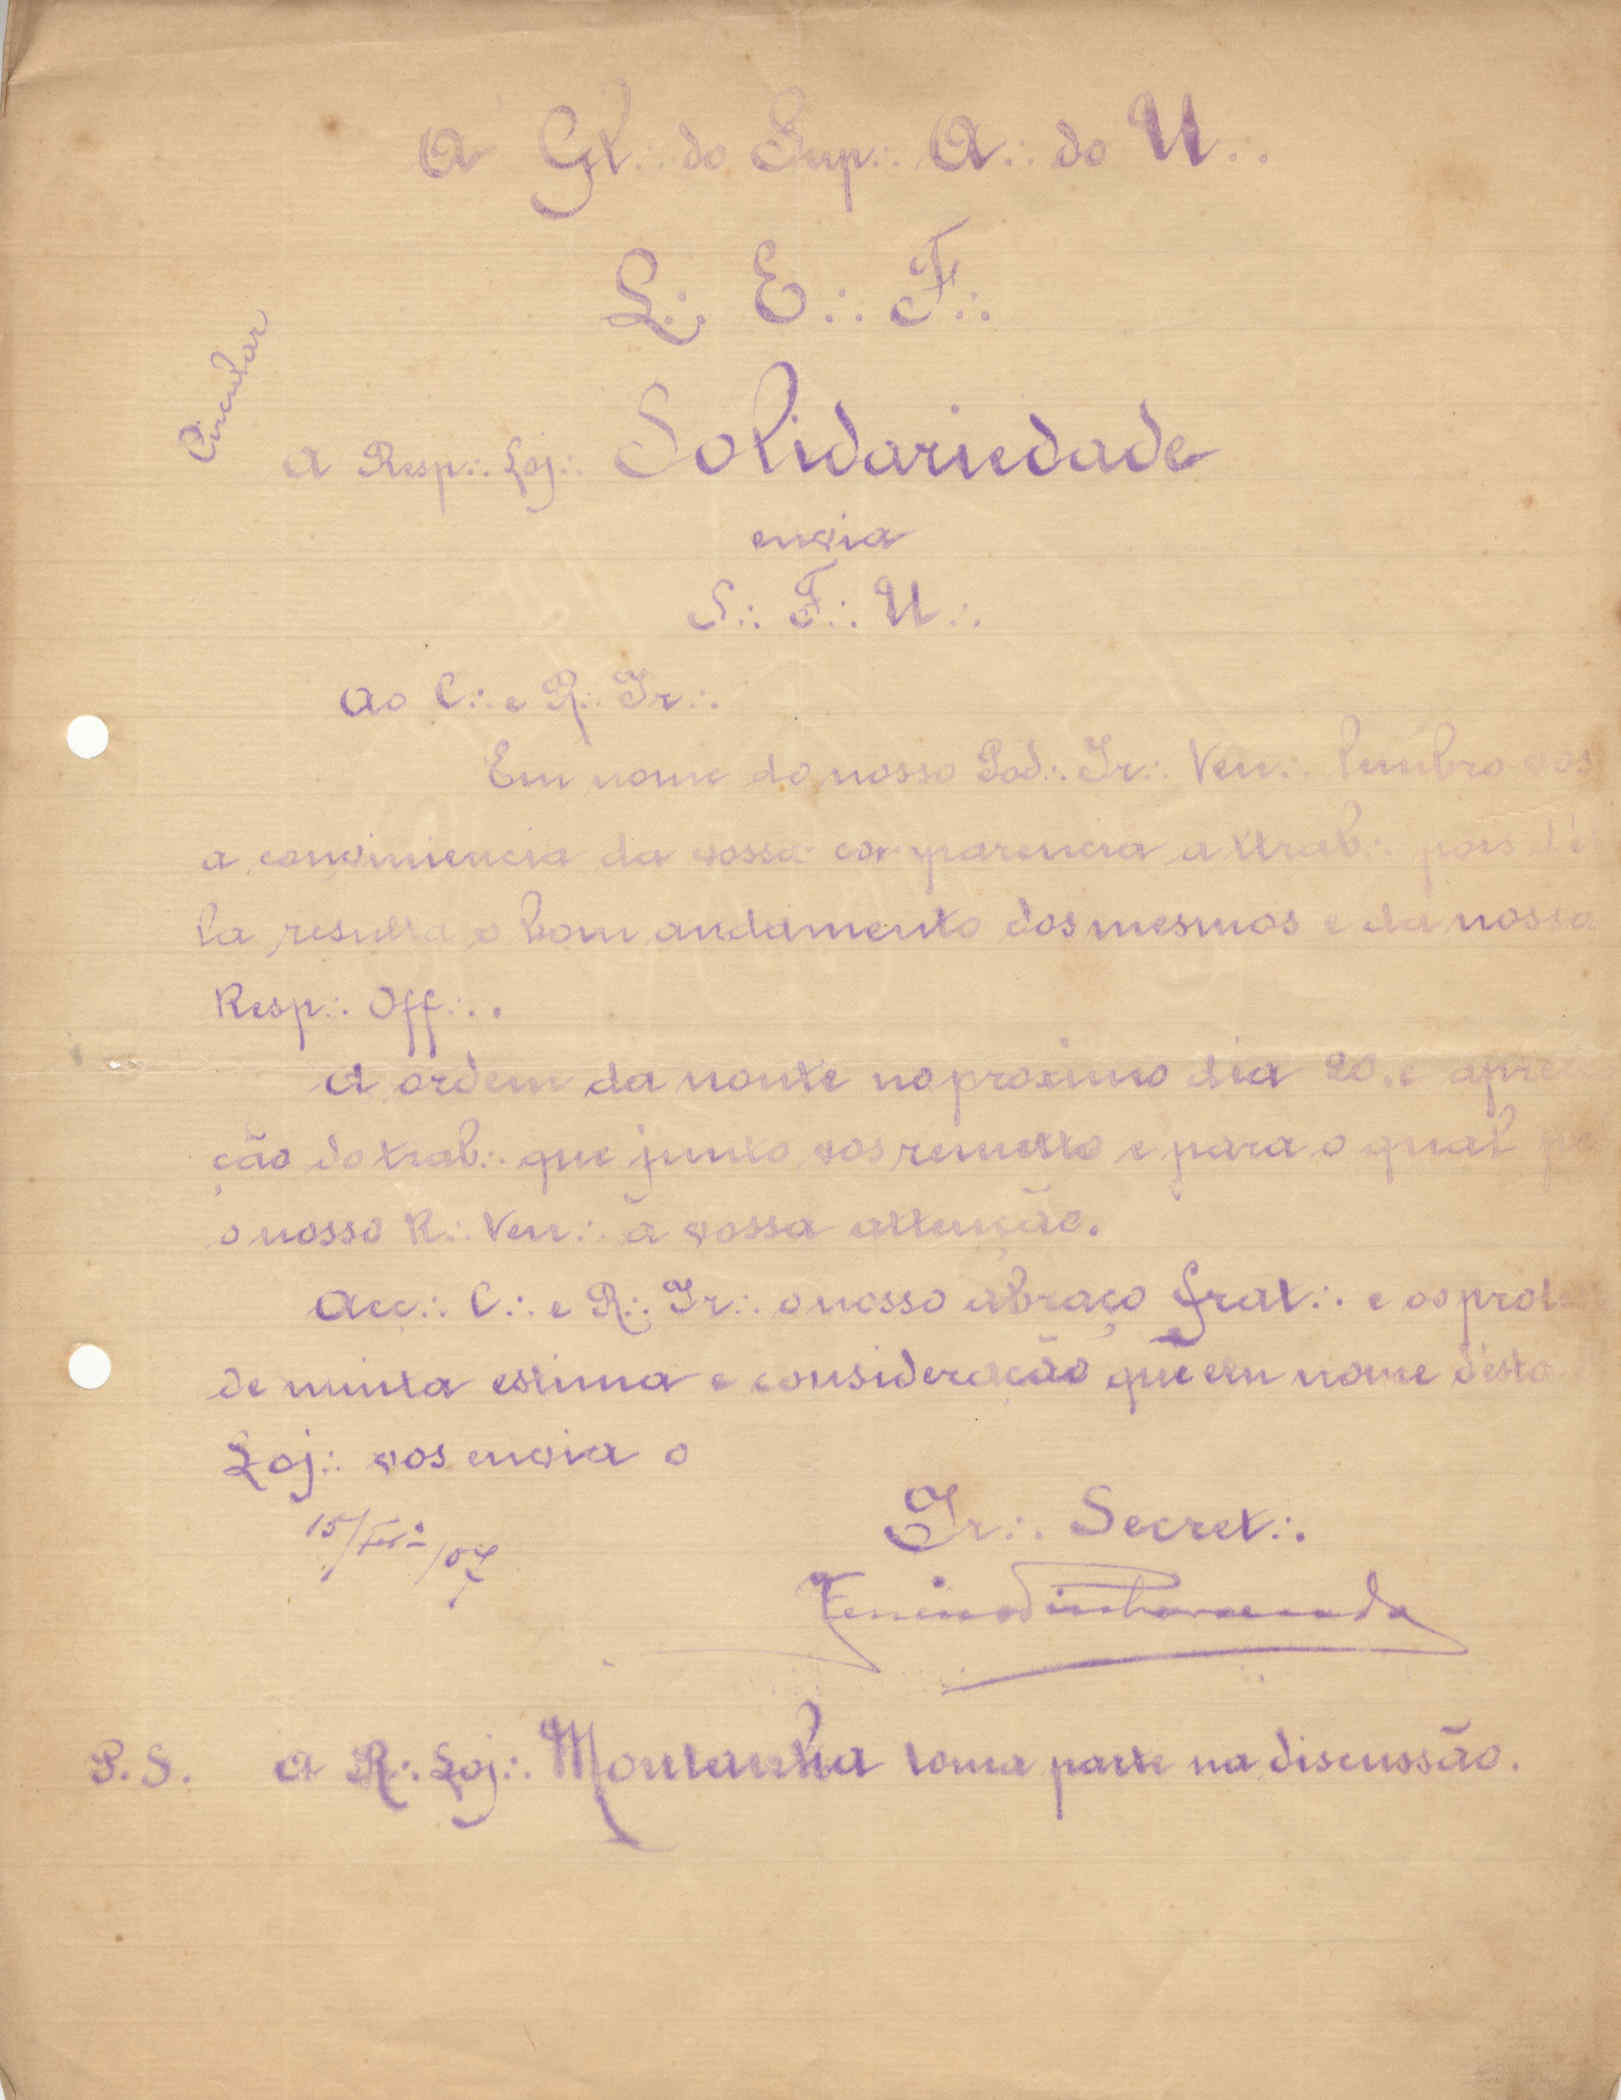 A Gl∴ do Sup∴ A∴ do U∴
L∴ E∴ F∴
Circular
A Resp∴ Loj∴ Solidariedade
envia
S∴ F∴ U∴
Ao C∴ e R∴ Ir∴
Em nome do nosso Pod∴ Ir∴ Ven∴ lembro vos
a conviniencia da vossa comparencia a ttrab∴ pois d'el
la resulta o bom andamento dos mesmos e da nossa
Resp∴ Off∴.
A ordem da noute no proximo dia 20, e aprecia
ção do trab∴ que junto vos remetto e para o qual
o nosso R∴ Ven∴ a vossa attenção.
Acc∴ C∴ e R∴ Ir∴ o nosso abraço frat∴ e os prot
de muita estima e consideração que em nome d'esta
Loj∴ vos envia o
15/Fevº/07
Ir∴ Secret∴
P.S. A R∴ Loj∴ Montanha toma parte na discussão.